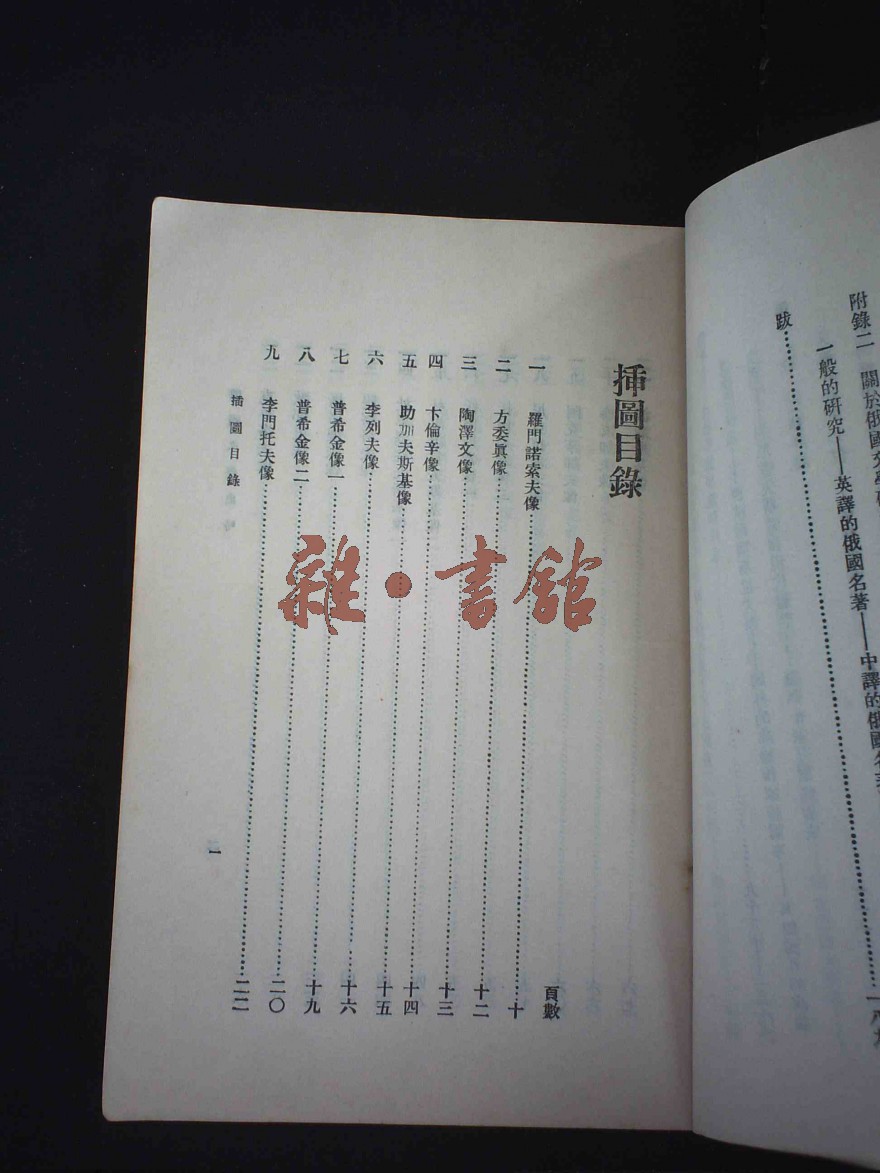 附錄二 關於俄國文學
一般的研究——英譯的俄國名著——中譯的俄國名著
跋
挿圖目錄
頁數
一 羅門諾索夫像 十
二 方委眞像 十二
三 陶澤文像 十三
四 卞倫辛像 十四
五 助加夫斯基像 十五
六 李列夫像 十六
七 普希金像一 十九
八 普希金像二 二〇
九 李門托夫像 二二
插圖目錄 一
雜·書館